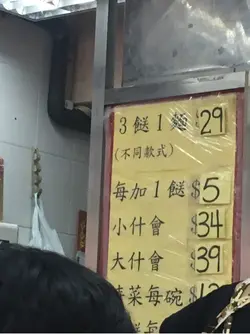 3 餸 1 麵 $29
(不同款式)
每加 1 餸 $5
小什會 $34
大什會 $39
菜每碗